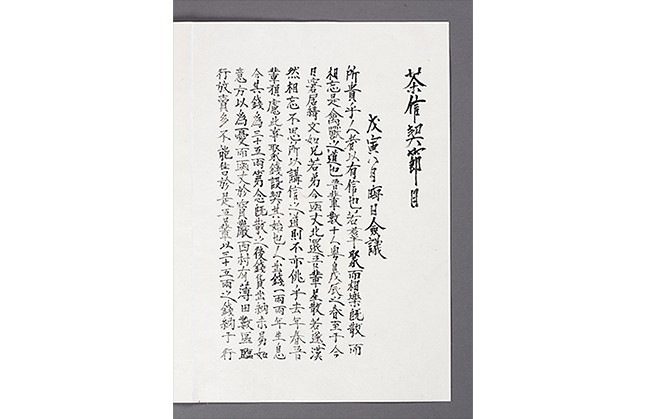 茶信契節目
戊寅八月晦日僉議
所貴乎人者以有信也若羣聚而相樂旣散而
相忘是禽獸之道也吾輩數十人粤自戊辰之春至于今
日羣居績文如兄若弟今函丈北還吾輩星散若遂漠
然相忘不思所以講信之道則不亦佻乎去年春吾
輩預慮此事聚錢設契其始也人出錢一兩兩年生息
今其錢為三十五兩第念旣散之後錢貨出納未易如
意方以為憂而函丈於寶巖西村有薄田數區臨
行放賣多不能售於是吾輩以三十五兩之錢納于行